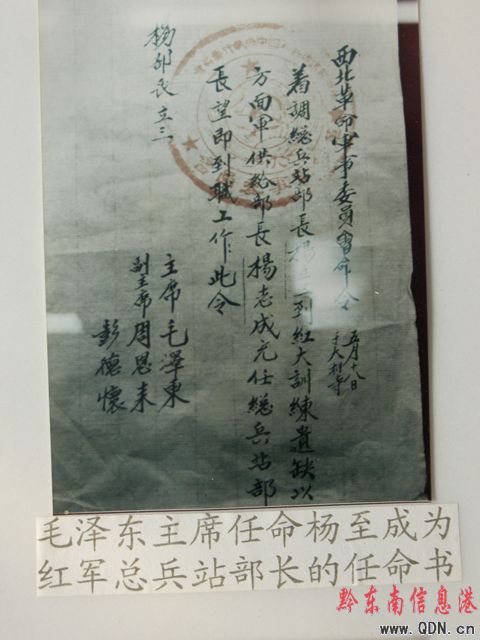 西北革命軍事委員會命令
五月十八日
着調總兵站部長楊立三到紅大訓練遺缺以
方面軍供給部長楊志成充任總兵站部
長望即到職工作此令
主席毛澤東
副主席周恩来
彭德懷
楊部長立三
毛泽东主席任命杨至成为
红军总兵站部长的任命书
黔东南信息港
www.QDN.cn